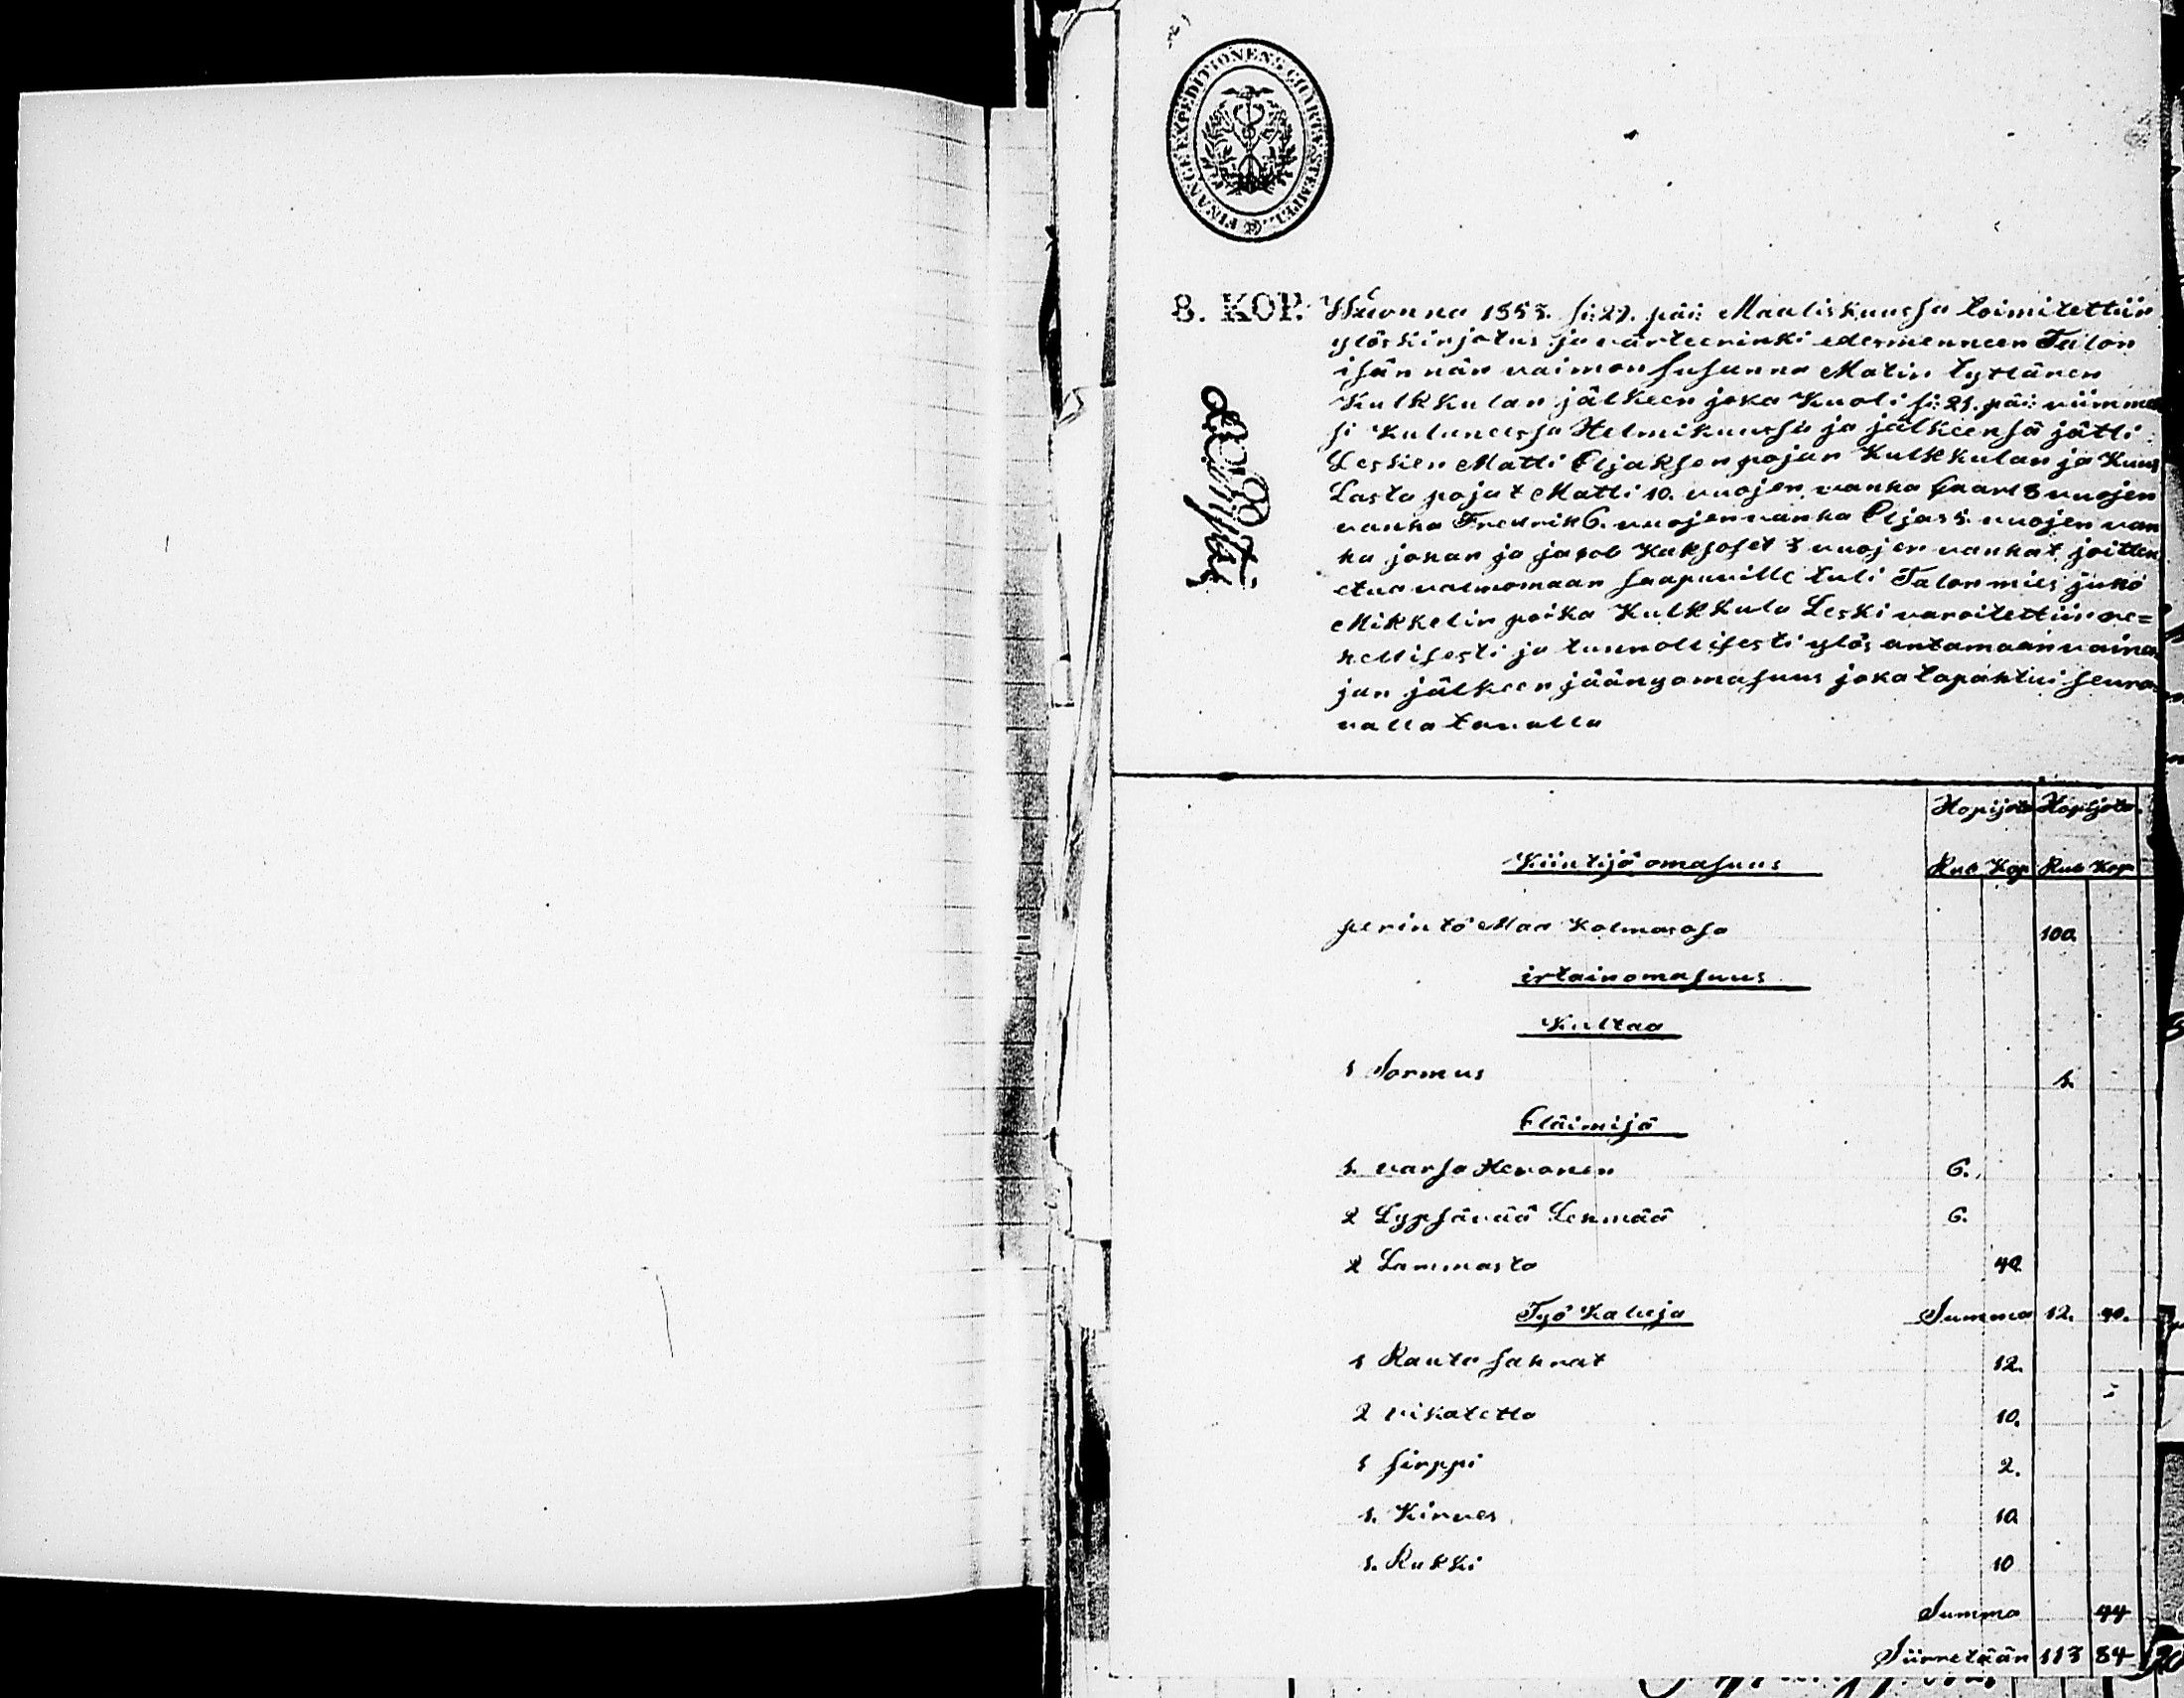 FINANCE EXPEDITIONENS CHARTÆ STEMPEL
8. KOP.
Wuonna 1853. si:29. päi: Maaliskuussa toimitettiin
ylöskirjotus ja värteerinki edesmenneen Talon
isännän vaimon Susanna Matin tyttären
Kulkkulan jälkeen joka Kuoli si:21. päi: viimme
si Kuluneessa Helmikuussa ja jälkeensä jätti
Leskien Matti Eljaksen pojan Kulkkulan ja Kuus
Lasta pojat Matti 10. vuojen vanha Kaarl 8 vuojen
vanha Fredrik 6. vuojen vanha Eljas 5. vuojen van
ha johan ja jacob Kaksoset 3 vuojen vanhat joitten
etua valwomaan saapuville tuli Talon mies juho
Mikkelin poika Kulkkula Leski varoitettiin re=
hellisesti ja tunnollisesti ylös antamaan vaina
jan jälkeen jäänyomasuus joka tapahtui seura
valla tavalla
Hopijata Hopijata.
Kiintijä omasuus Rub Kop Rub Kop
perintö Maa Kolmasosa 100.
irtain omasuus
Kultaa
1 Sormus 1.
Eläimijä
1. varsa Hevonen 6.
2 Lypsävää Lehmää 6.
2 Lammasta 40
Työ Kaluja Summa 12. 40.
1 Rauta sahrat 12.
2 vikatetta 10.
1 sirppi 2.
1. Kirves 10
1. Rukki 10
Summa 44
Siirretään 113 84